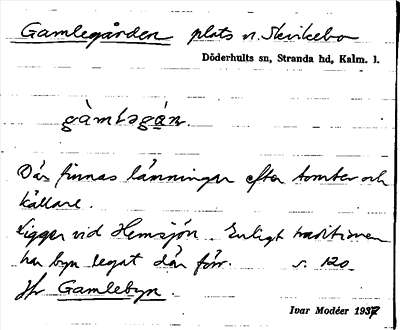 Gamlegården plats n. Skrikebo
Döderhults sn, Stranda hd, Kalm. l.
gàmləgɑ̀n.
Där finnas lämningar efter tomter och
källare.
Ligger vid Hemsjön. Enligt traditionen
har byn legat där förr. s. 120
Jfr Gamlebyn.
Ivar Modéer 1937